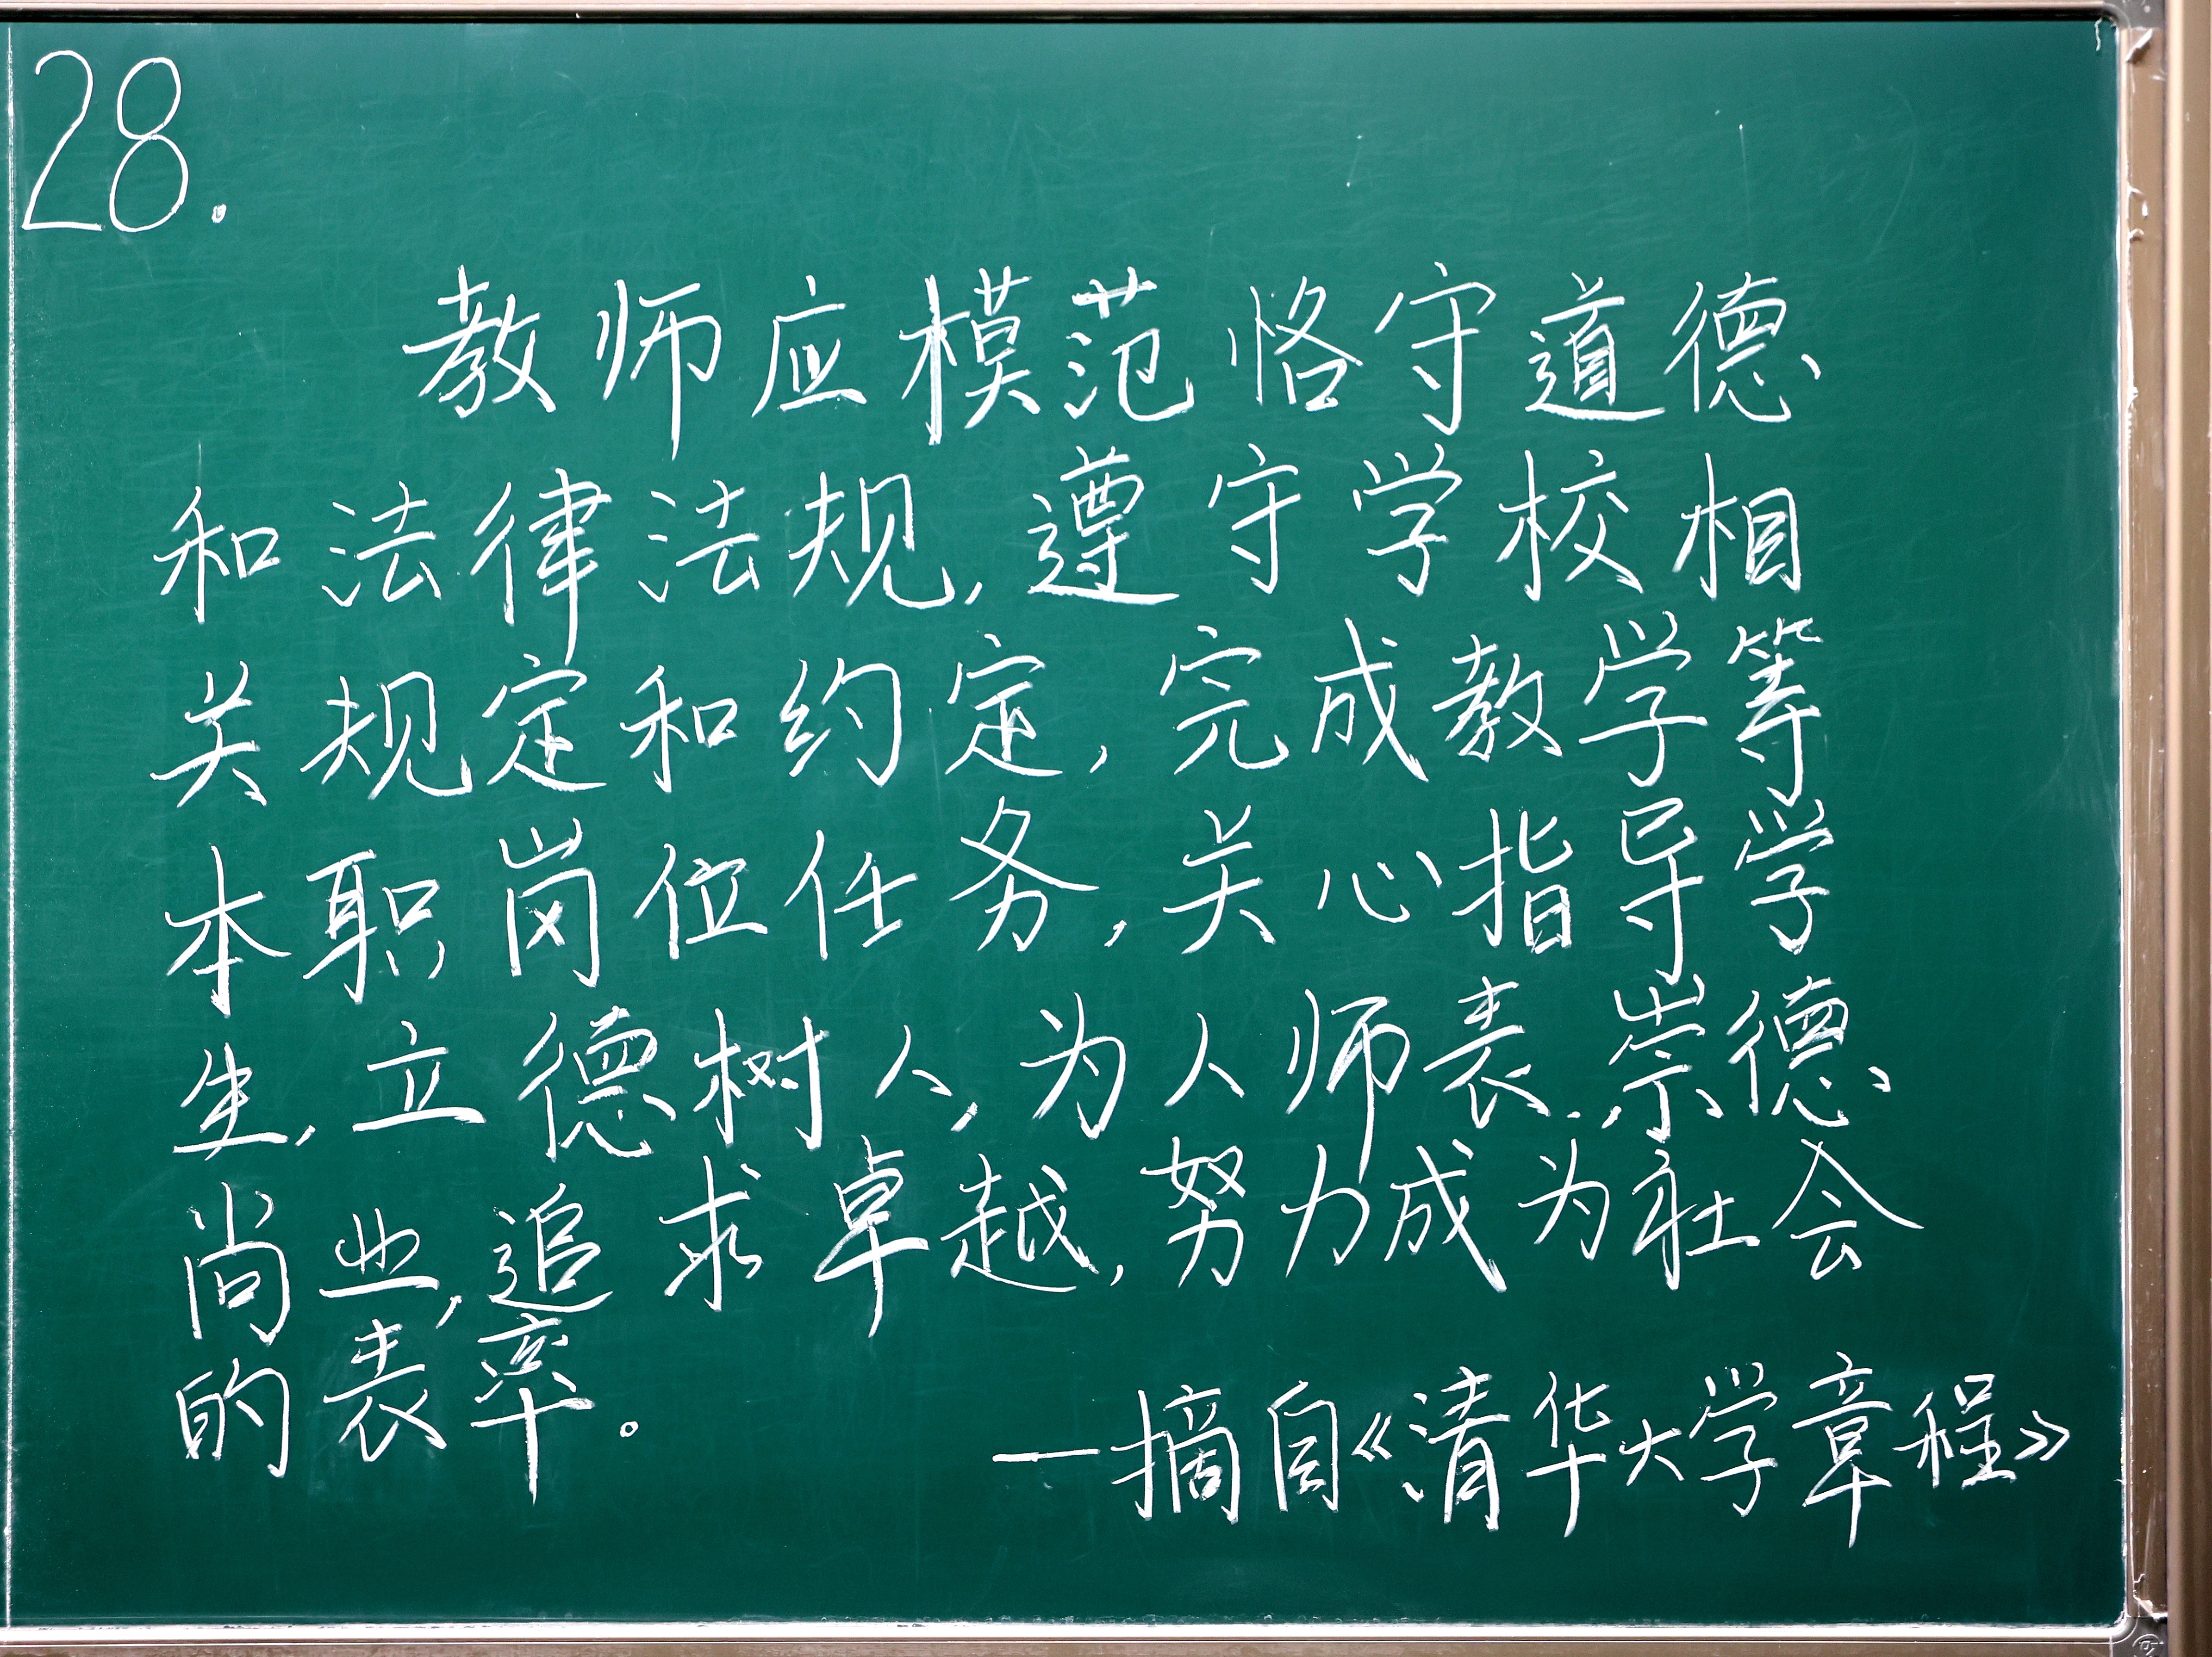 28.
教师应模范恪守道德
和法律法规,遵守学校相
关规定和约定,完成教学等
本职岗位任务,关心指导学
生,立德树人,为人师表,崇德
尚业,追求卓越,努力成为社会
的表率。
—摘自《清华大学章程》